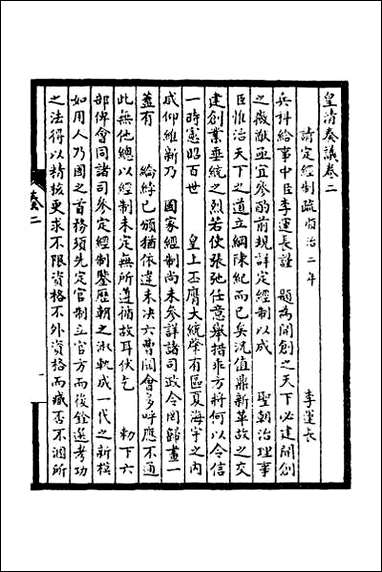 皇清奏議卷二
請定經制疏順治二年
李運長
兵科給事中臣李運長謹 題為開創之天下必建開創
之嶶猷亟宜參酌前規詳定經制以成 聖朝治理事
臣惟治天下之道立綱陳紀而已矣況值鼎新革故之交
建創業垂統之烈若使張弛任意舉措乖方將何以令信
一時憲昭百世 皇上丕膺大統肇有區夏海宇之內
咸仰維新乃 國家經制尚未參詳諸司政令罔歸畫一
蓋有 綸綍已頒猶依違未決六曹開會多呼應不通
此無他總以經制未定無所遵循故耳伏乞 勅下六
部俾會同諸司參定經制鑒歷朝之淑軌成一代之新模
如用人乃國之首務須先定官制立官方而後銓選考功
之法得以精核更求不限資格不外資格而臧否不溷所
奏二
一